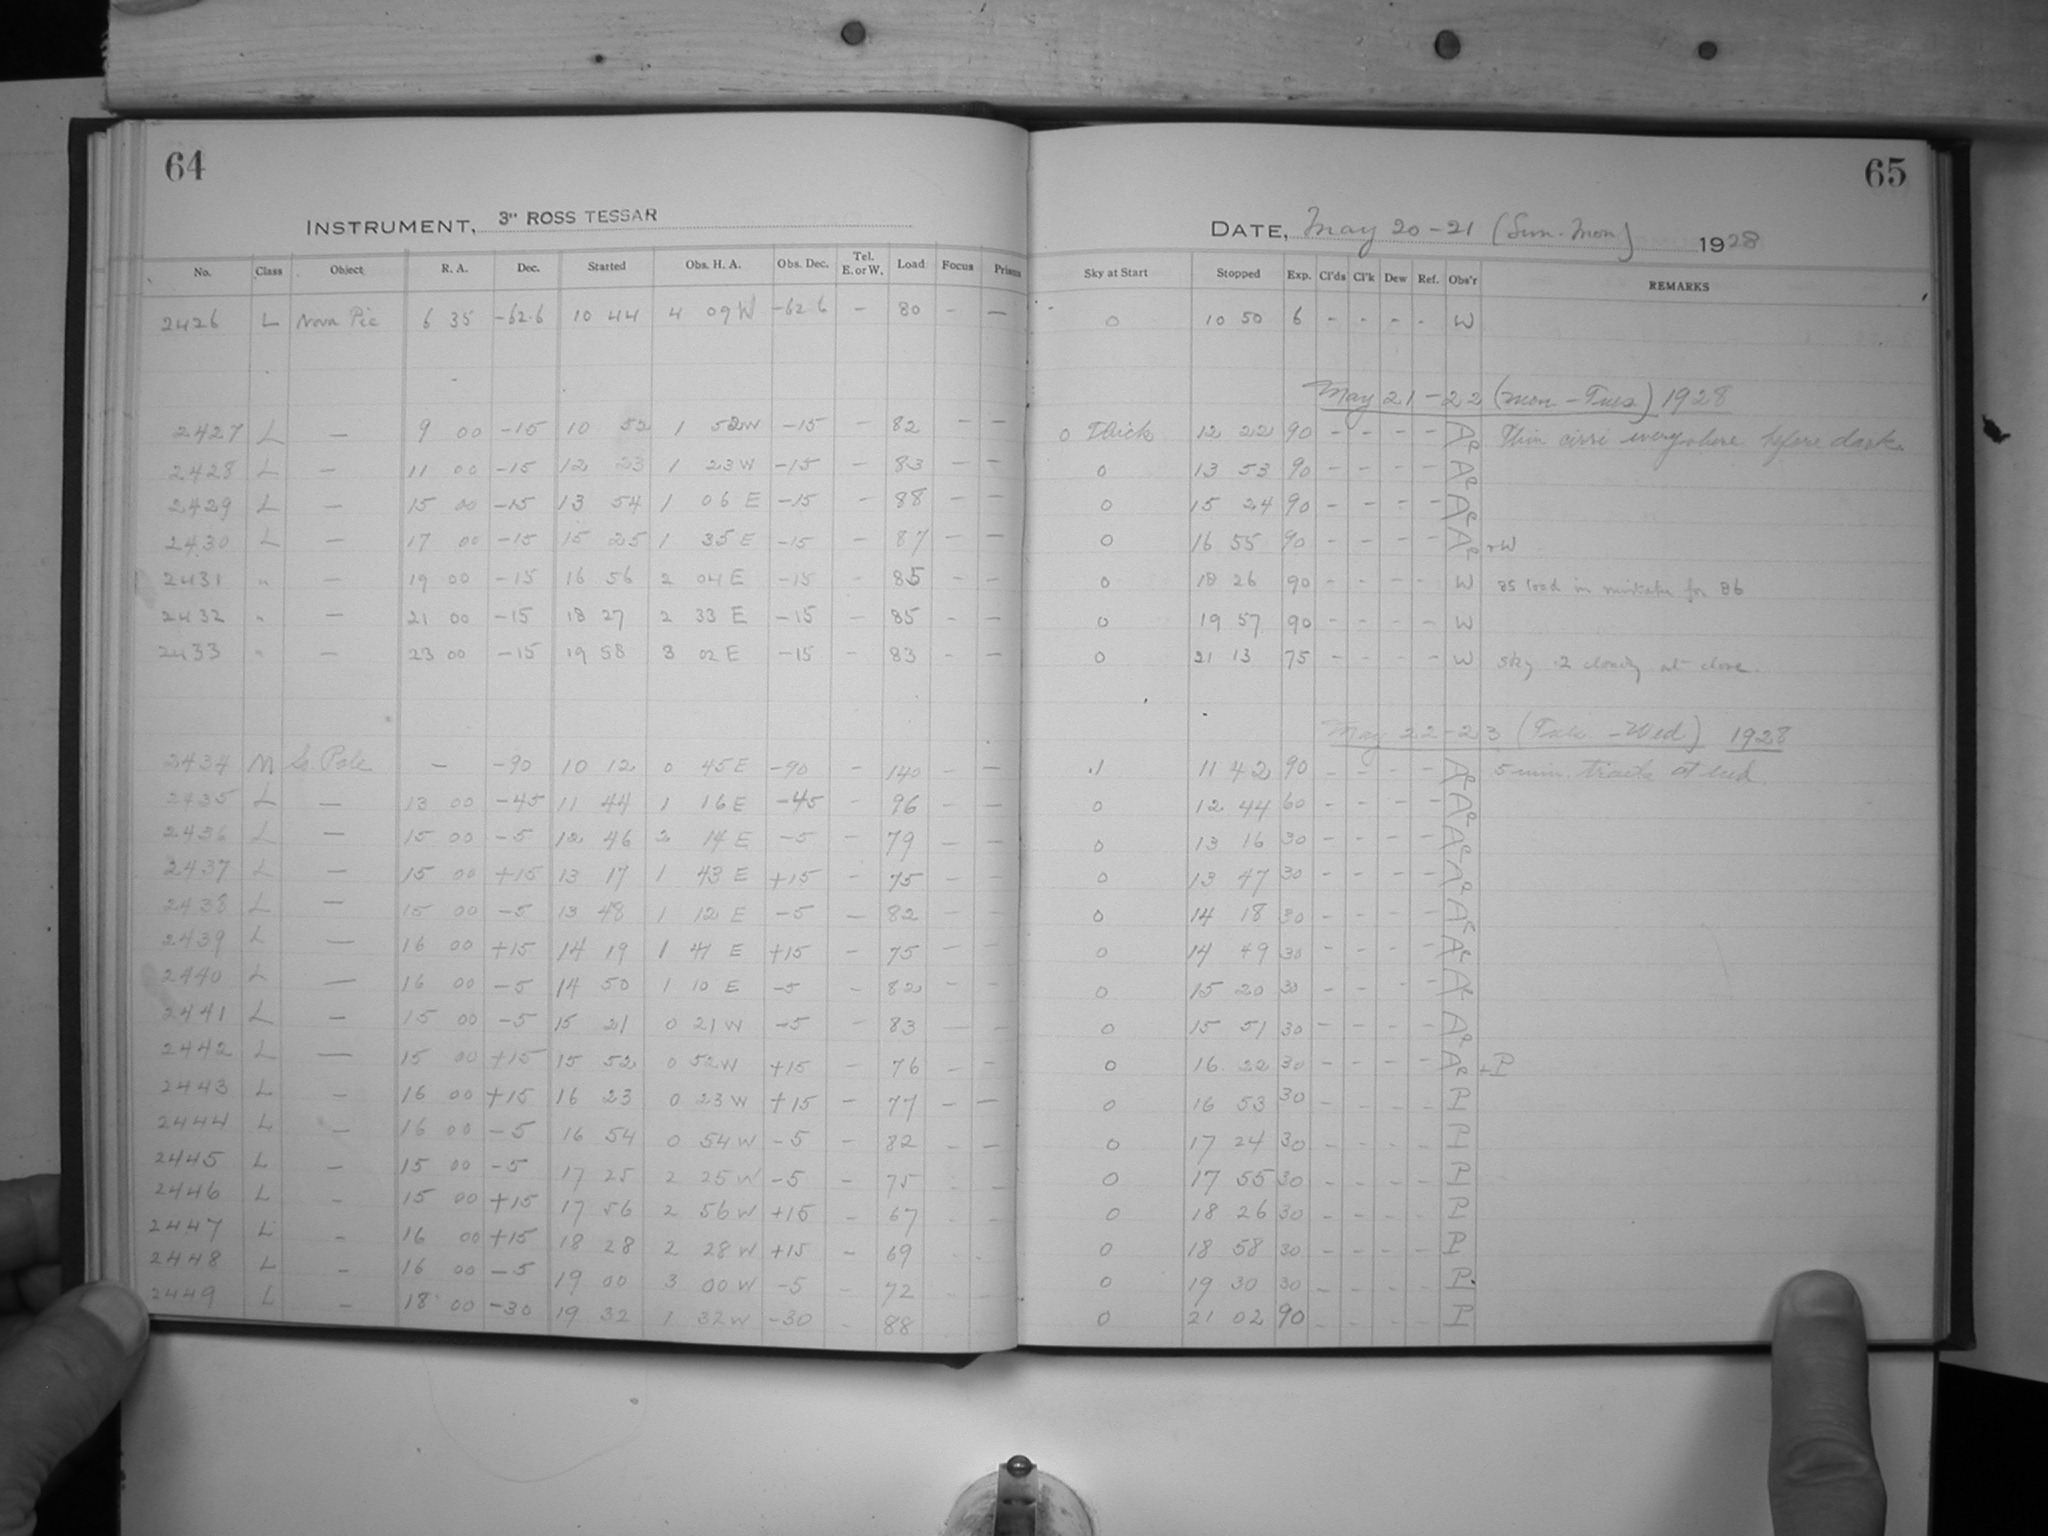 64
INSTRUMENT, 3" ROSS TESSAR
No. Class Object R. A. Dec. Started Obs. H. A. Obs. Dec. Tel. E. or W. Load Focus Prism
2426 L Nova Pic 6 35 -62.6 10 44 4 09 W -62.6 - 80 - -
2427 L - 9 00 -15 10 52 1 52 W -15 - 82 - -
2428 L - 11 00 -15 12 23 1 23 W -15 - 83 - -
2429 L - 15 00 -15 13 54 1 06 E -15 - 88 - -
2430 L - 17 00 -15 15 25 1 35 E -15 - 87 - -
2431 " - 19 00 -15 16 56 2 04 E -15 - 85 - -
2432 " - 21 00 -15 18 27 2 33 E -15 - 85 - -
2433 " - 23 00 -15 19 58 3 02 E -15 - 83 - -
2434 M So. Pole - -90 10 12 0 45 E -90 - 140 - -
2435 L - 13 00 -45 11 44 1 16 E -45 - 96 - -
2436 L - 15 00 -5 12 46 2 14 E -5 - 79 - -
2437 L - 15 00 +15 13 17 1 43 E +15 - 75 - -
2438 L - 15 00 -5 13 48 1 12 E -5 - 82 - -
2439 L - 16 00 +15 14 19 1 41 E +15 - 75 - -
2440 L - 16 00 -5 14 50 1 10 E -5 - 82 - -
2441 L - 15 00 -5 15 21 0 21 W -5 - 83 - -
2442 L - 15 00 +15 15 52 0 52 W +15 - 76 - -
2443 L - 16 00 +15 16 23 0 23 W +15 - 77 - -
2444 L - 16 00 -5 16 54 0 54 W -5 - 82 - -
2445 L - 15 00 -5 17 25 2 25 W -5 - 75 - -
2446 L - 15 00 +15 17 56 2 56 W +15 - 67 - -
2447 L - 16 00 +15 18 28 2 28 W +15 - 69 - -
2448 L - 16 00 -5 19 00 3 00 W -5 - 72 - -
2449 L - 18 00 -30 19 32 1 32 W -30 - 88 - -
65
DATE, May 20-21 (Sun-Mon) 1928
Sky at Start Stopped Exp. Cl'ds Cl'k Dew Ref. Obs'r REMARKS
0 10 50 6 - - - - W
May 21-22 (Mon-Tues) 1928
0 Thick 12 22 90 - - - - Ae Thin cirri everywhere before dark.
0 13 53 90 - - - - Ae
0 15 24 90 - - - - Ae
0 16 55 90 - - - - Ae + W
0 18 26 90 - - - - W 85 load in mistake for 86
0 19 57 90 - - - - W
0 21 13 75 - - - - W sky .2 cloudy at close.
May 22-23 (Tues-Wed) 1928
.1 11 42 90 - - - - Ae 5 min. trails at end.
0 12 44 60 - - - - Ae
0 13 16 30 - - - - Ae
0 13 47 30 - - - - Ae
0 14 18 30 - - - - Ae
0 14 49 30 - - - - Ae
0 15 20 30 - - - - Ae
0 15 51 30 - - - - Ae
0 16 22 30 - - - - Ae + P
0 16 53 30 - - - - P
0 17 24 30 - - - - P
0 17 55 30 - - - - P
0 18 26 30 - - - - P
0 18 58 30 - - - - P
0 19 30 30 - - - - P
0 21 02 90 - - - - P